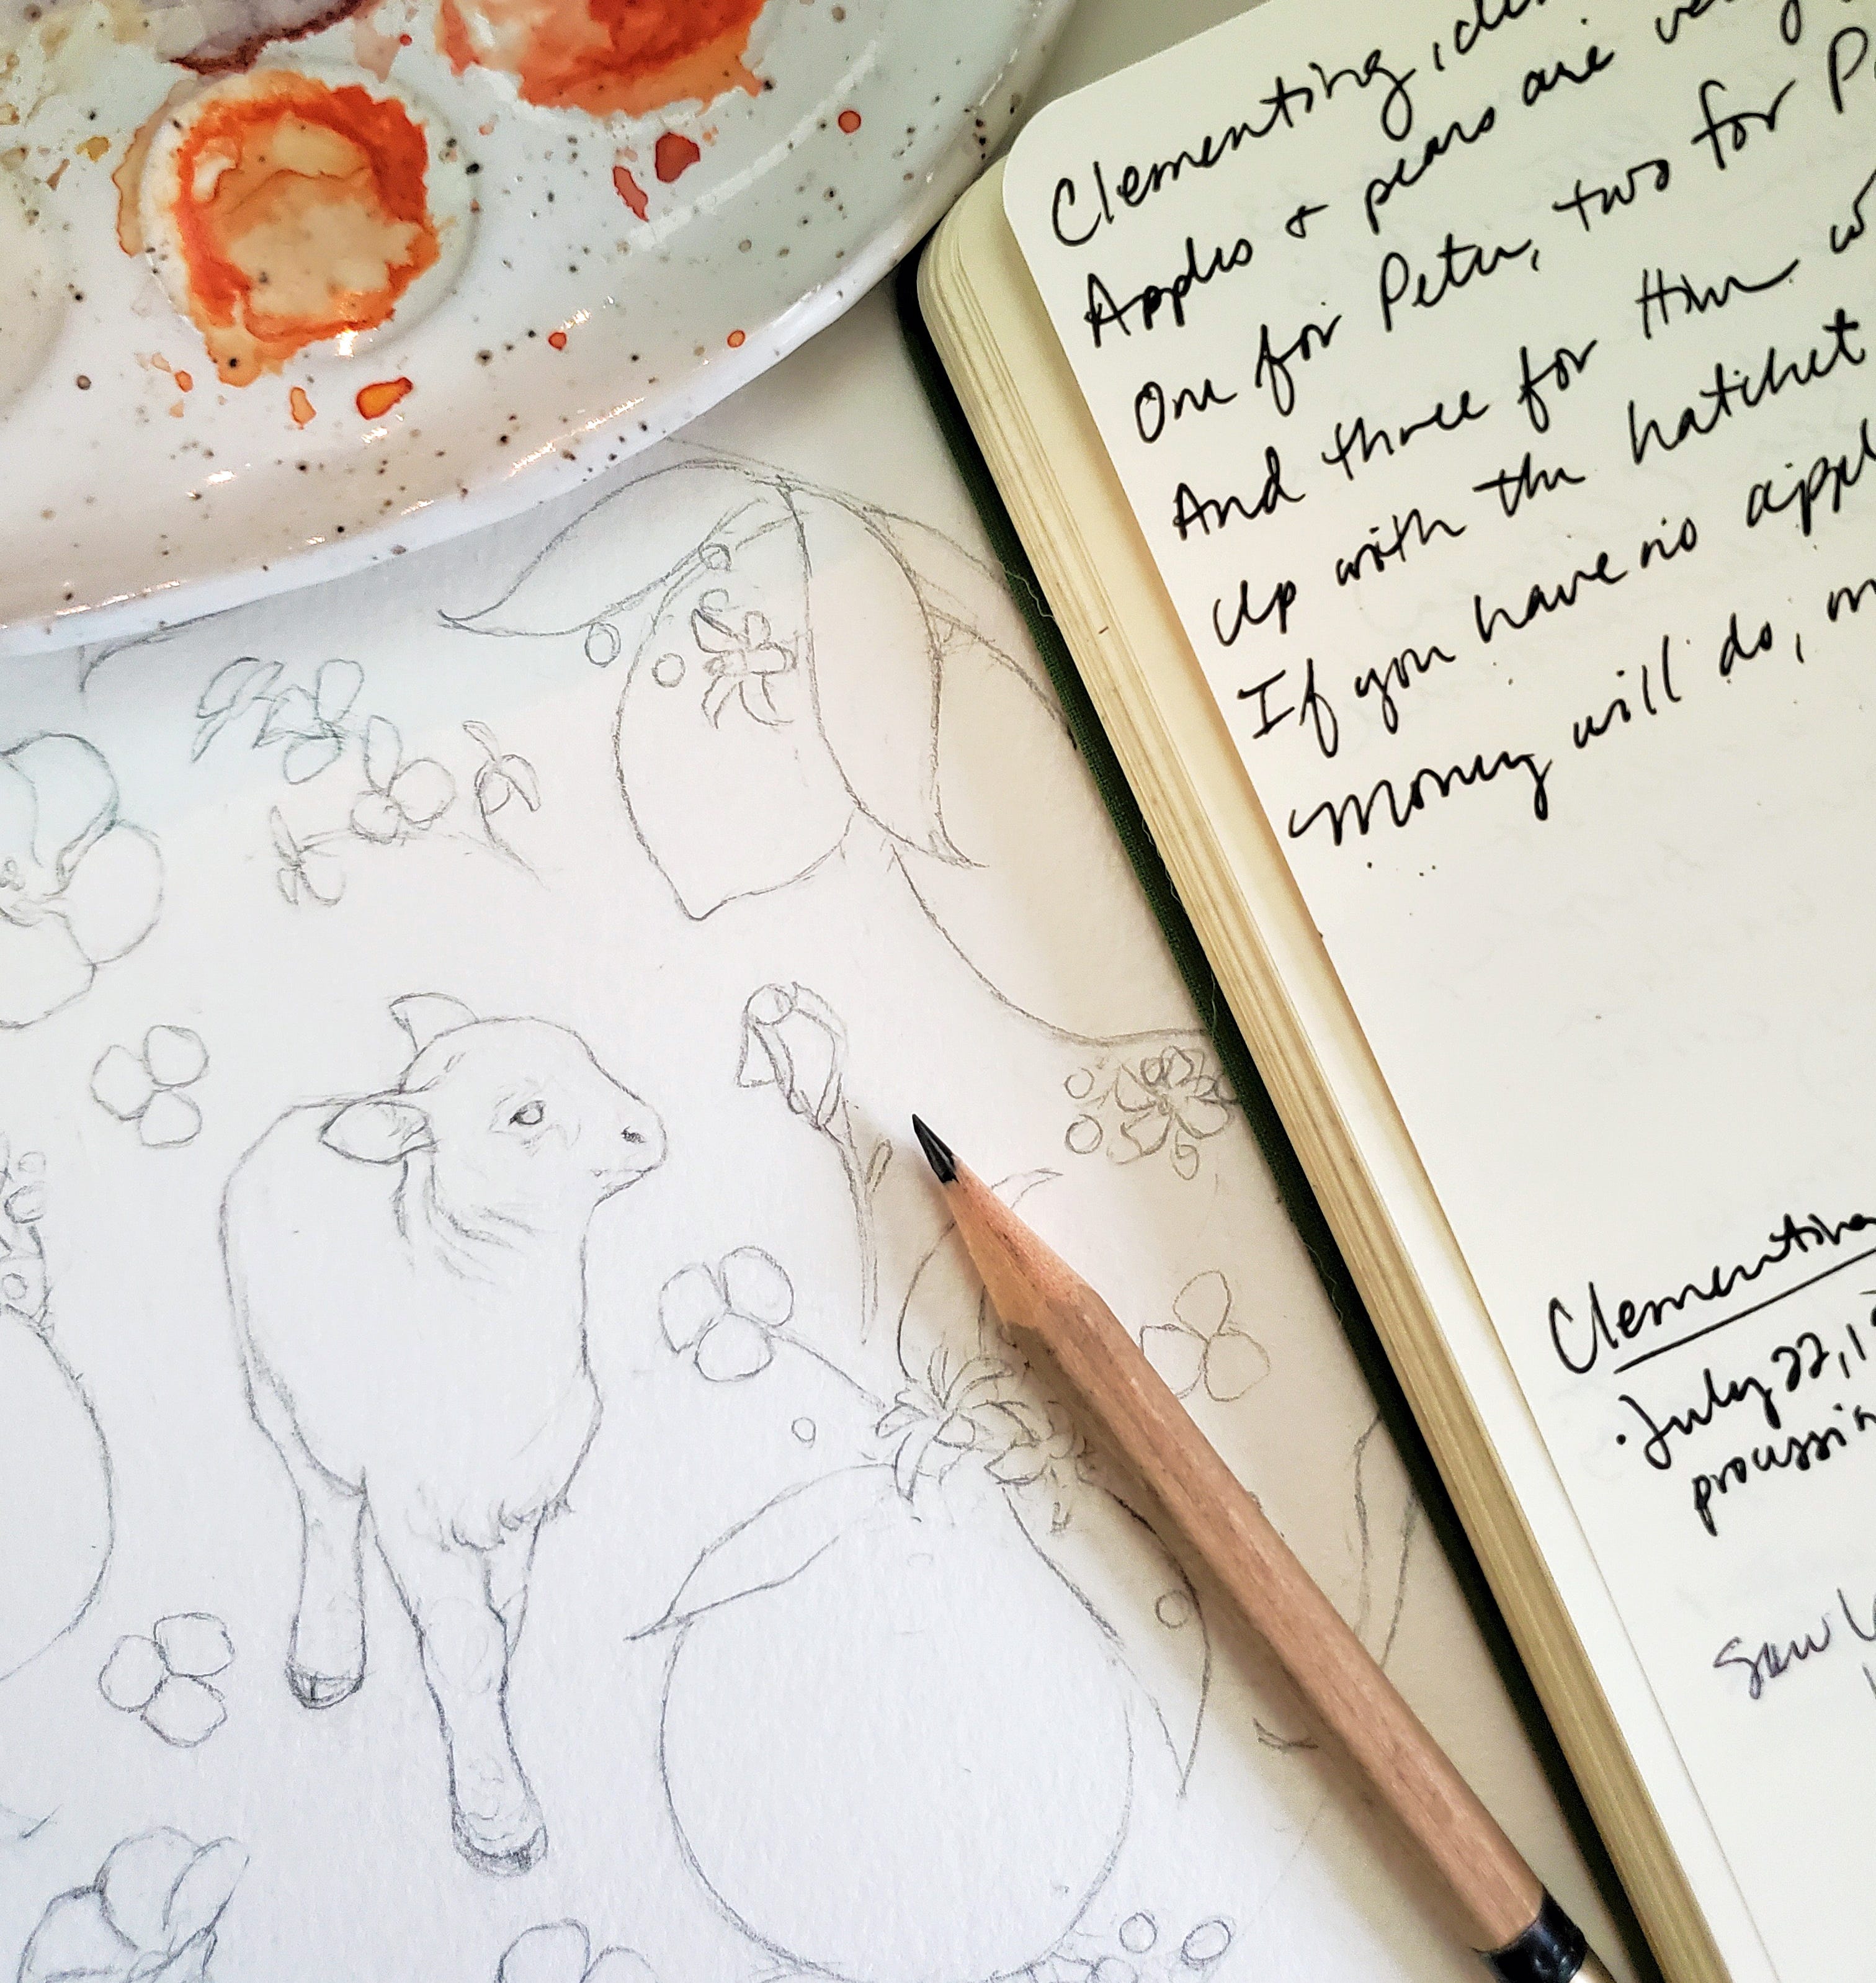 Clementing,
Apples + pears are
One for Peter, two for
And three for Him
Up with the hatchet
If you have no
Money will do,
Clementing
• July 22,
Saw